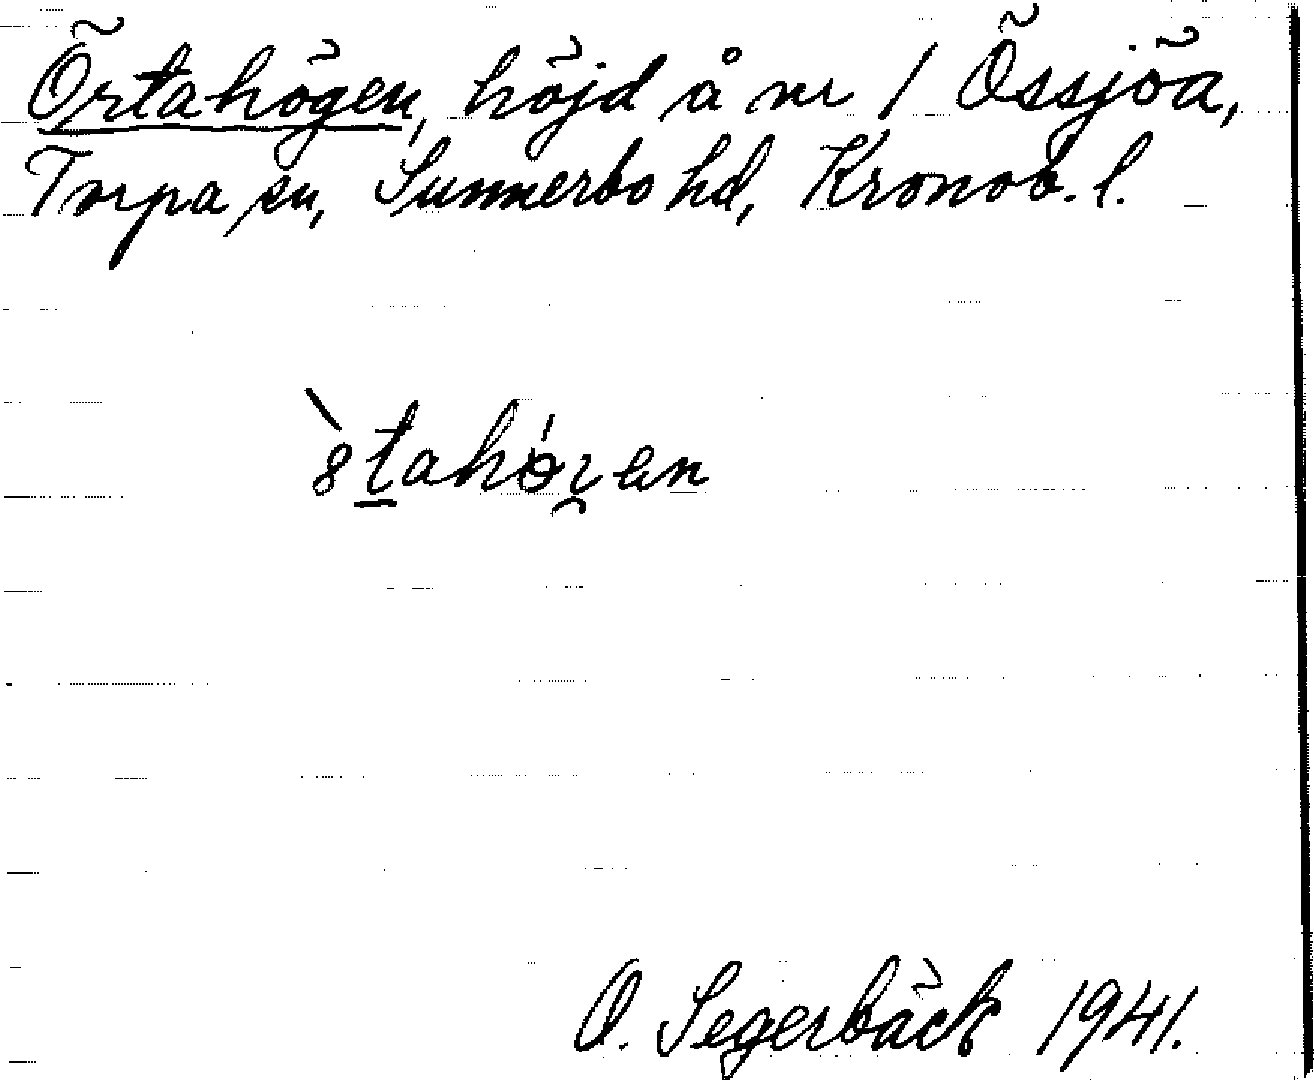 Örtahögen, höjd å nr 1 Össjöa,
Torpa sn, Sunnerbo hd, Kronob. l.
O. Segerbäck 1941.